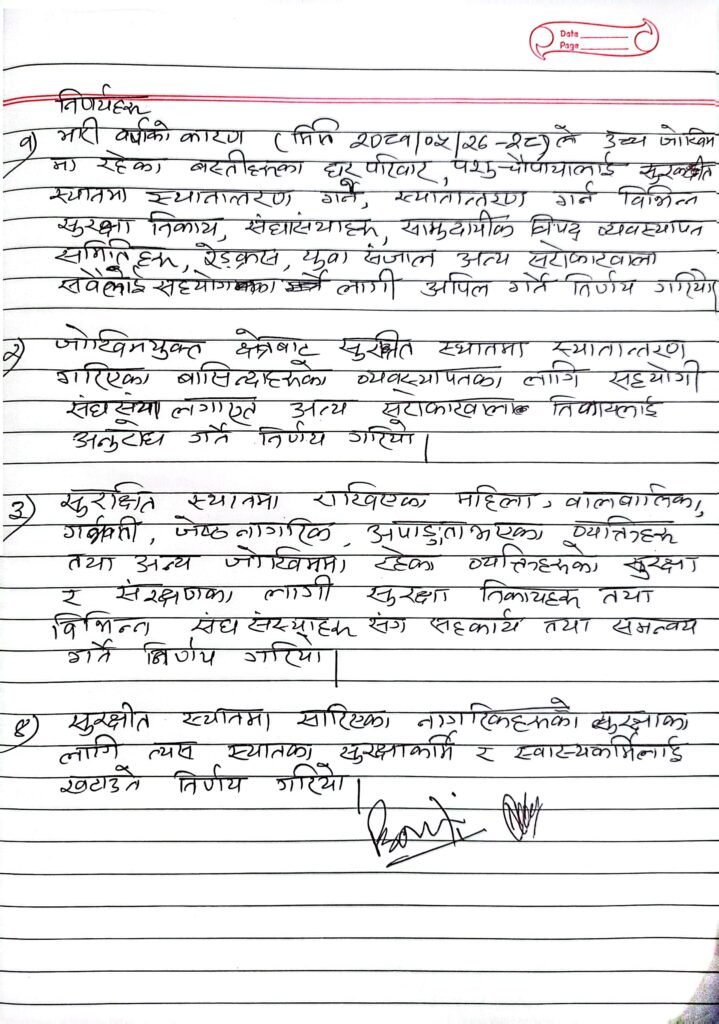 Date
Page
निर्णयहरु
१) भारी वर्षाको कारण (मिति २०८१/०५/२६-२८) ले उच्च जोखिम
मा रहेका बस्तीहरुका घर परिवार, पशु-चौपायालाई सुरक्षीत
स्थानमा स्थानान्तरण गर्ने, स्थानान्तरण गर्न विभिन्न
सुरक्षा निकाय, संघसंस्थाहरु, सामुदायीक विपद् व्यवस्थापन
समितिहरु, रेडक्रस, युवा संजाल अन्य सरोकारवाला
सवैलाई सहयोगका लागी अपिल गर्ने निर्णय गरियो।
२) जोखिमयुक्त क्षेत्रबाट सुरक्षीत स्थानमा स्थानान्तरण
गरिएका बासिन्दाहरुको व्यवस्थापनका लागि सहयोगी
संघ संस्था लगाएत अन्य सरोकारवाला निकायलाई
अनुरोध गर्ने निर्णय गरियो।
३) सुरक्षित स्थानमा राखिएका महिला, वालवालिका,
गर्ववती, जेष्ठ नागरिक, अपाङ्गता भएका व्यक्तिहरु
तथा अन्य जोखिममा रहेका व्यक्तिहरुको सुरक्षा
र संरक्षणका लागी सुरक्षा निकायहरु तथा
विभिन्न संघ संस्थाहरु संग सहकार्य तथा समन्वय
गर्ने निर्णय गरियो।
४) सुरक्षीत स्थानमा सारिएका नागरिकहरुको सुरक्षाका
लागि त्यस स्थानका सुरक्षाकर्मि र स्वास्थ्यकर्मिलाई
खटाउने निर्णय गरियो।